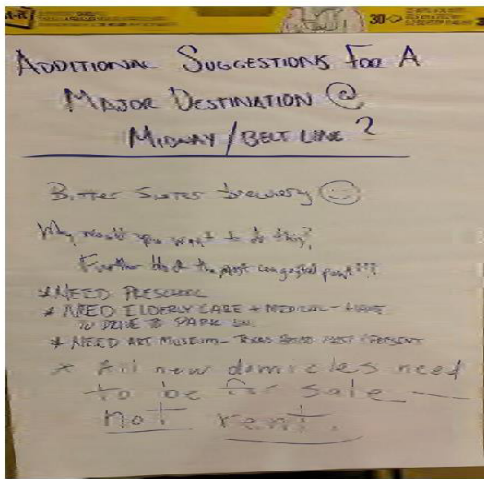 30
ADDITIONAL SUGGESTIONS FOR A
MAJOR DESTINATION @
MIDWAY/BELT LINE?
Bitter Sisters brewery
Why would you want to do this?
Further block the most congested point???
* NEED PRESCHOOL
* NEED ELDERLY CARE + MEDICAL - HAVE
TO DRIVE TO PARK LN.
* NEED ART MUSEUM - PAST PRESENT
* All new domiciles need
to be for sale
not rent.